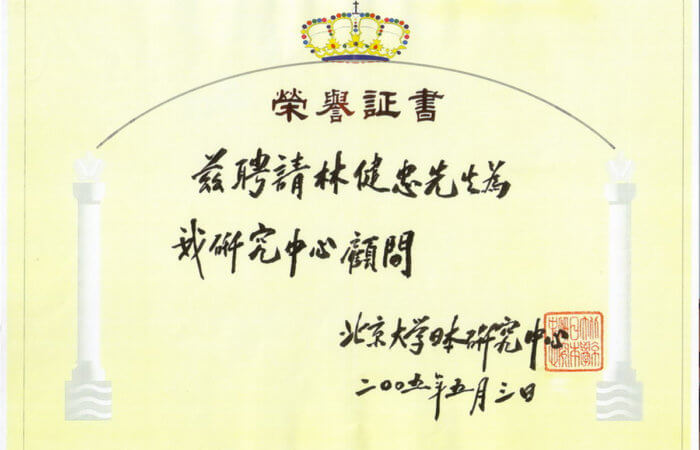 榮譽証書
茲聘請林健忠先生為
我研究中心顧問
北京大学日本研究中心
二00五年五月三日